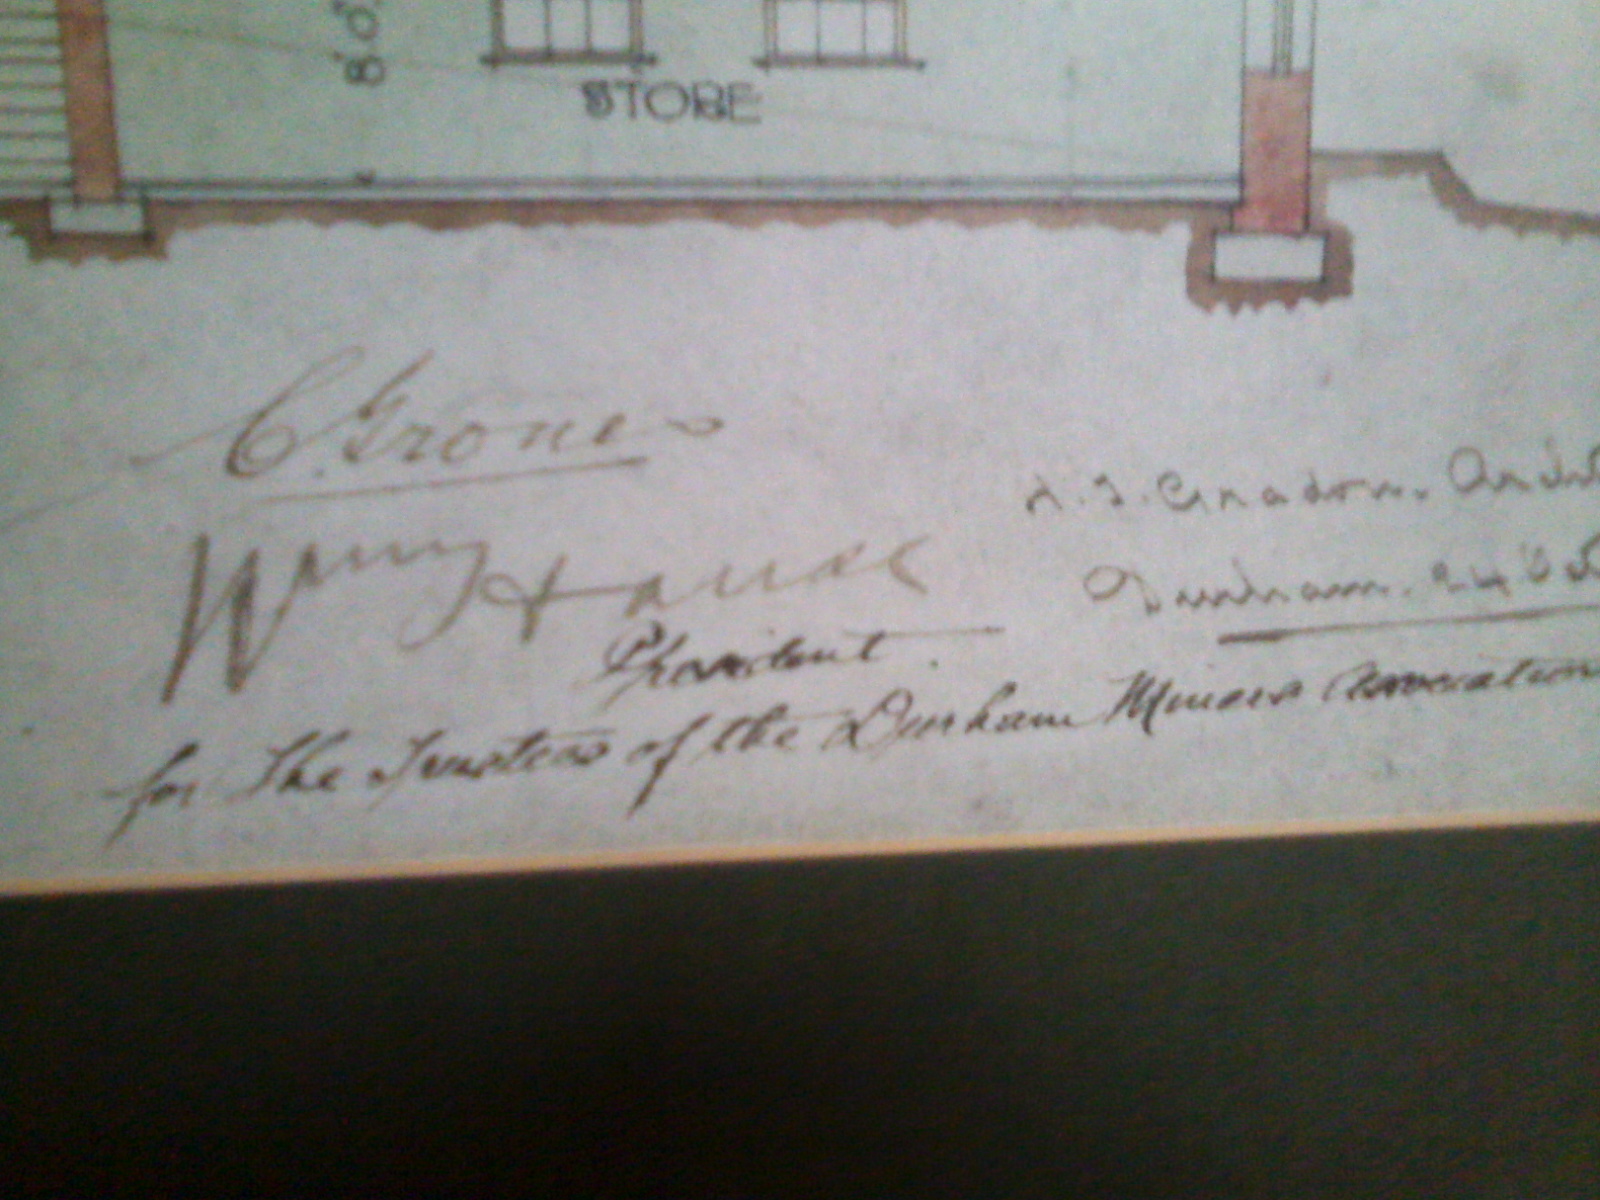 8'.0"
STORE
C. Grone
Wm House
President.
for the Trustees of the Durham Miners Association
H. T. Gradon.
Durham. 24